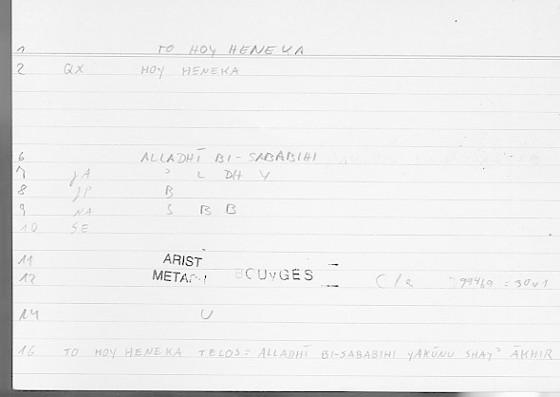 1 TO HOY HENEKA
2 QX HOY HENEKA
6 ALLADHĪ BI-SABABIHI
7 JA ʾ L DH Y
8 JP B
9 NA S B B
10 SE
11 ARIST
12 METAPH C/a 994b9
14 U
16 TO HOY HENEKA TELOS = ALLADHĪ BI-SABABIHI YAKŪNU SHAYʾ ĀKHIR